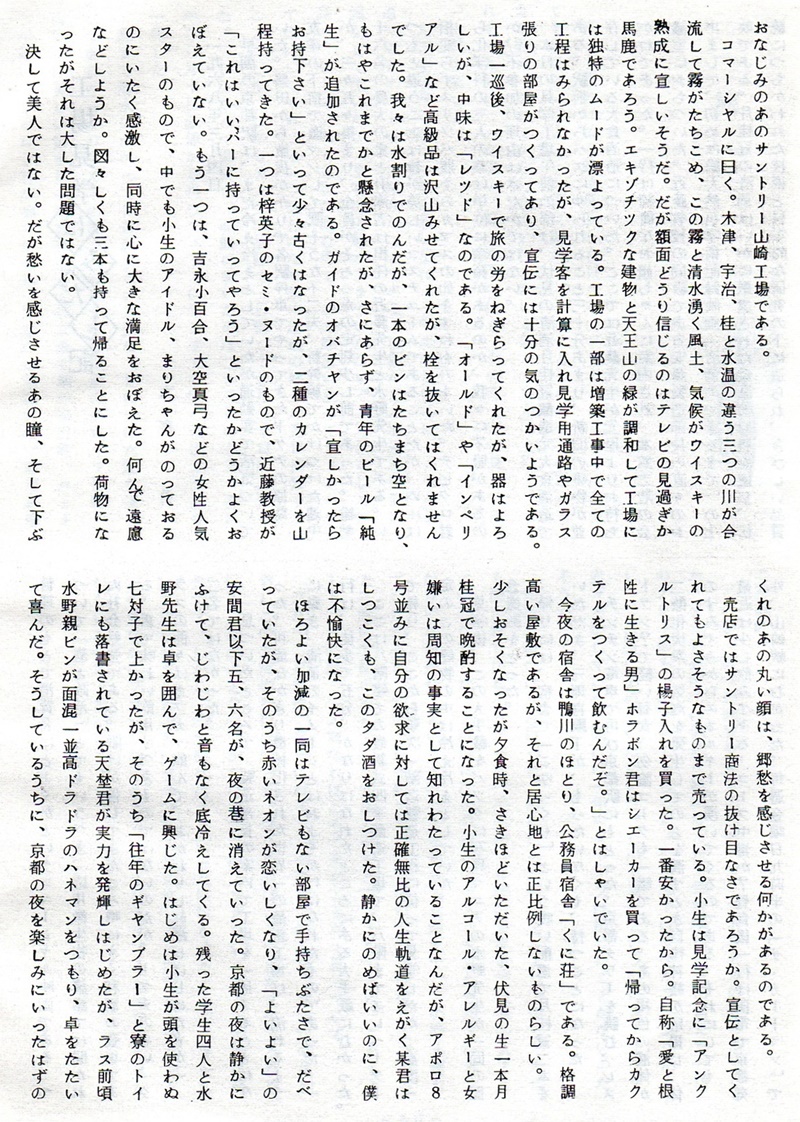 おなじみのあのサントリー山崎工場である。
コマーシャルに曰く。木津、宇治、桂と水温の違う三つの川が合
流して霧がたちこめ、この霧と清水湧く風土、気候がウイスキーの
熟成に宜しいそうだ。だが額面どうり信じるのはテレビの見過ぎか
馬鹿であろう。エキゾチツクな建物と天王山の緑が調和して工場に
は独特のムードが漂よっている。工場の一部は増築工事中で全ての
工程はみられなかったが、見学客を計算に入れ見学用通路やガラス
張りの部屋がつくってあり、宣伝には十分の気のつかいようである。
工場一巡後、ウイスキーで旅の労をねぎらってくれたが、器はよろ
しいが、中味は「レツド」なのである。「オールド」や「インペリ
アル」など高級品は沢山みせてくれたが、栓を抜いてはくれません
でした。我々は水割りでのんだが、一本のビンはたちまち空となり、
もはやこれまでかと懸念されたが、さにあらず、青年のビール「純
生」が追加されたのである。ガイドのオバチャンが「宜しかったら
お持下さい」といって少々古くはなったが、二種のカレンダーを山
程持ってきた。一つは梓英子のセミ・ヌードのもので、近藤教授が
「これはいい、バーに持っていってやろう」といったかどうかよくお
ぼえていない。もう一つは、吉永小百合、大空真弓などの女性人気
スターのもので、中でも小生のアイドル、まりちゃんがのっておる
のにいたく感激し、同時に心に大きな満足をおぼえた。何んで遠慮
などしようか。図々しくも三本も持って帰ることにした。荷物にな
ったがそれは大した問題ではない。
決して美人ではない。だが愁いを感じさせるあの瞳、そして下ぶ
くれのあの丸い顔は、郷愁を感じさせる何かがあるのである。
売店ではサントリー商法の抜け目なさであろうか。宣伝としてく
れてもよさそうなものまで売っている。小生は見学記念に「アンク
ルトリス」の楊子入れを買った。一番安かったから。自称「愛と根
性に生きる男」ホラボン君はシエーカーを買って「帰ってからカク
テルをつくって飲むんだぞ。」とはしゃいでいた。
今夜の宿舎は鴨川のほとり、公務員宿舎「くに荘」である。格調
高い屋敷であるが、それと居心地とは正比例しないものらしい。
少しおそくなったが夕食時、さきほどいただいた、伏見の生一本月
桂冠で晩酌することになった。小生のアルコール・アレルギーと女
嫌いは周知の事実として知れわたっていることなんだが、アポロ8
号並みに自分の欲求に対しては正確無比の人生軌道をえがく某君は
しつこくも、このタダ酒をおしつけた。静かにのめばいいのに、僕
は不愉快になった。
ほろよい加減の一同はテレビもない部屋で手持ちぶたさで、だべ
っていたが、そのうち赤いネオンが恋いしくなり、「よいよい」の
安間君以下五、六名が、夜の巷に消えていった。京都の夜は静かに
ふけて、じわじわと音もなく底冷えしてくる。残った学生四人と水
野先生は卓を囲んで、ゲームに興じた。はじめは小生が頭を使わぬ
七対子で上かったが、そのうち「往年のギヤンブラー」と寮のトイ
レにも落書されている天埜君が実力を発輝しはじめたが、ラス前頃
水野親ビンが面混一並高ドラドラのハネマンをつもり、卓をたたい
て喜んだ。そうしているうちに、京都の夜を楽しみにいったはずの